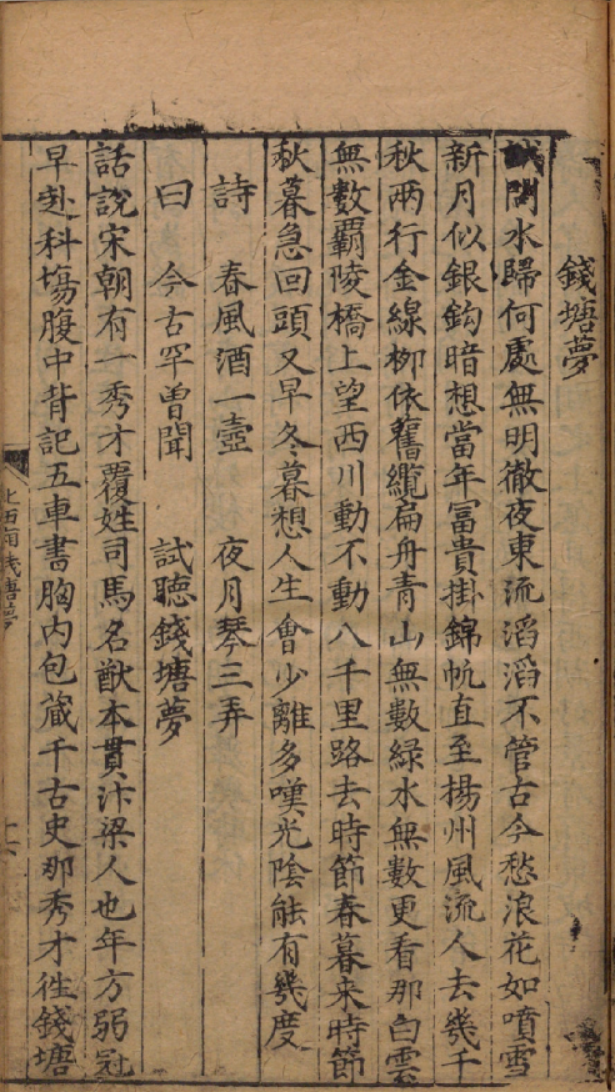 錢塘夢
試問水歸何處無明徹夜東流滔滔不管古今愁浪花如噴雪
新月似銀鈎暗想當年富貴掛錦帆直至揚州風流人去幾千
秋兩行金線栁依舊纜扁舟青山無數緑水無數更看那白雲
無數覇陵橋上望西川動不動八千里路去時節春暮来時節
秋暮急回頭又早冬暮想人生會少離多嘆光陰能有幾度
詩　春風酒一壺　夜月琴三弄
曰　今古罕曽聞　試聽錢塘夢
話說宋朝有一秀才覆姓司馬名猷本貫汴梁人也年方弱冠
早赴科塲腹中背記五車書胸内包蔵千古史那秀才徃錢塘
西廂 錢塘夢